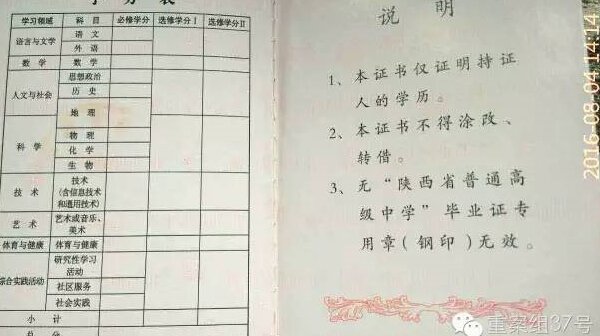 学习领域 科 目 必修学分 选修学分Ⅰ 选修学分Ⅱ
语言与文学 语 文
外 语
数 学 数 学
人文与社会 思想政治
历 史
地 理
科 学 物 理
化 学
生 物
技 术 技术
(含信息技术
和通用技术)
艺 术 艺术或音乐、
美术
体育与健康 体育与健康
综合实践活动 研究性学习
活动
社区服务
社会实践
小 计
总 分
说 明
1、本证书仅证明持证
人的学历。
2、本证书不得涂改、
转借。
3、无“陕西省普通高
级中学”毕业证专
用章(钢印)无效。
2016-08-04 14:14
重案组37号